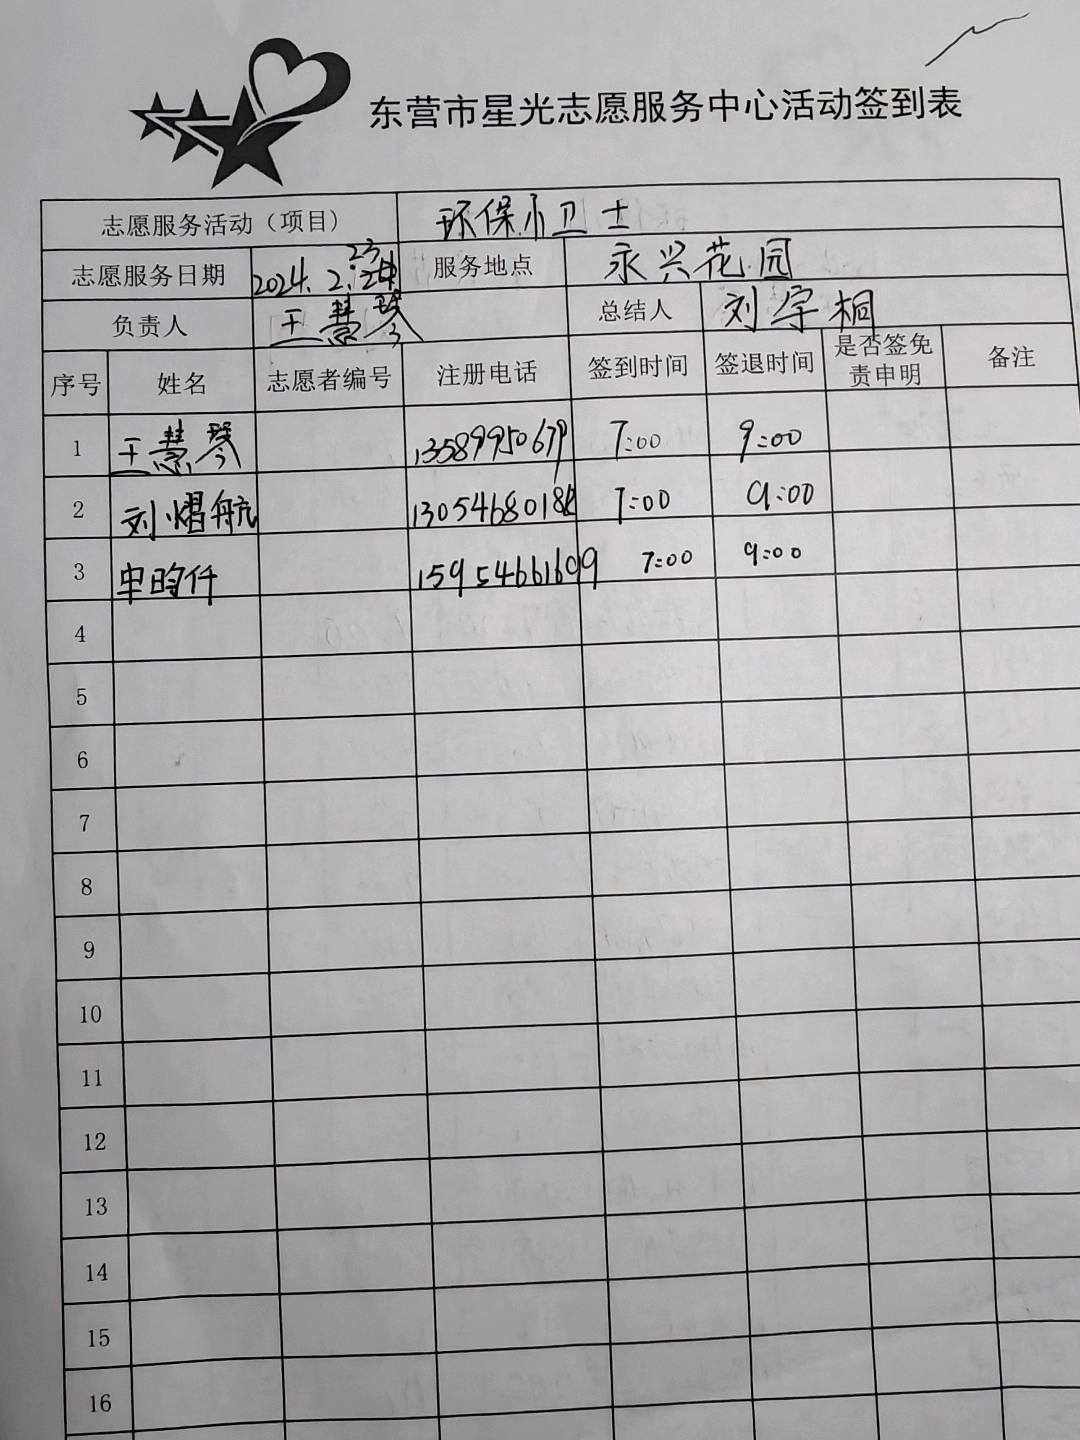 东营市星光志愿服务中心活动签到表
志愿服务活动（项目） 环保小卫士
志愿服务日期 2024.2.23 服务地点 永兴花园
负责人 王慧琴 总结人 刘宇桐
序号 姓名 志愿者编号 注册电话 签到时间 签退时间 是否签免责申明 备注
1 王慧琴 13589950679 7:00 9:00
2 刘熠航 7:00 9:00
3 申昀仟 15954661609 7:00 9:00
4
5
6
7
8
9
10
11
12
13
14
15
16